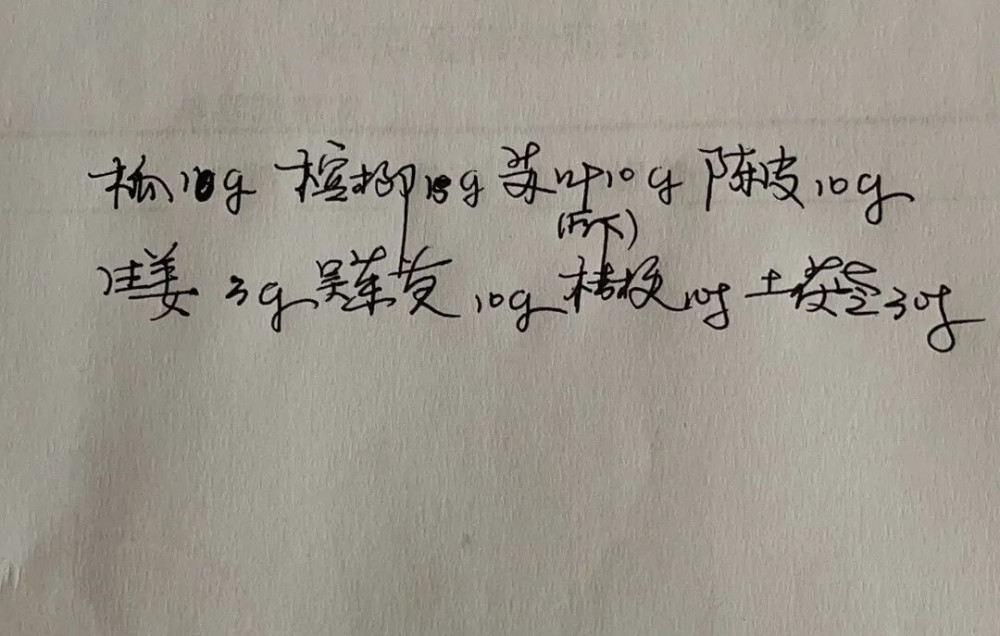 木瓜10g 槟榔10g 苏叶10g 陈皮10g
(后下)
生姜 3g 吴茱萸 10g 桔梗10g 土茯苓30g